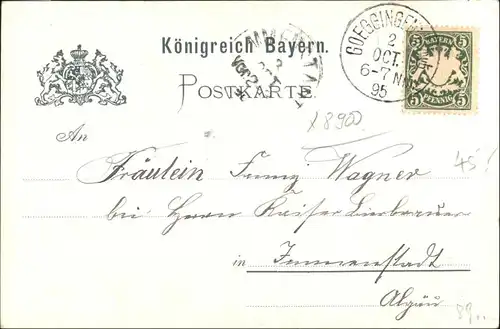 Königreich Bayern.
POSTKARTE.
GOEGGINGEN
2
OCT.
6-7 N
95
BAYERN
5 5
5 5
PFENNIG
x8900
An
45
Fräulein Fanny Wagner
bei Herrn Kaiser
in Immenstadt
Algäu
89..